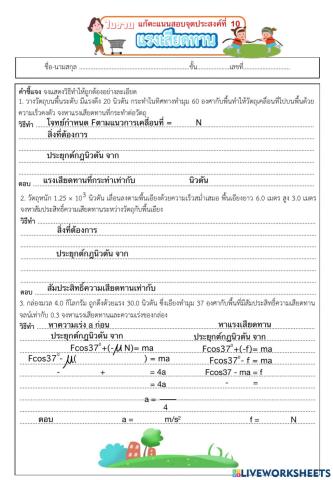 ใบงาน แก้คะแนนสอบจุดประสงค์ที่ 10
แรงเสียดทาน
ชื่อ-นามสกุล ชั้น เลขที่
คำชี้แจง จงแสดงวิธีทำให้ถูกต้องอย่างละเอียด
1. วางวัตถุบนพื้นระดับ มีแรงดึง 20 นิวตัน กระทำในทิศทางทำมุม 60 องศากับพื้นทำให้วัตถุเคลื่อนที่ไปบนพื้นด้วย
ความเร็วคงตัว จงหาแรงเสียดทานที่กระทำต่อวัตถุ
วิธีทำ โจทย์กำหนด Fตามแนวการเคลื่อนที่ = N
สิ่งที่ต้องการ
ประยุกต์กฎนิวตัน จาก
ตอบ แรงเสียดทานที่กระทำเท่ากับ นิวตัน
2. วัตถุหนัก 1.25 × 10³ นิวตัน เลื่อนลงตามพื้นเอียงด้วยความเร็วสม่ำเสมอ พื้นเอียงยาว 6.0 เมตร สูง 3.0 เมตร
จงหาสัมประสิทธิ์ความเสียดทานระหว่างวัตถุกับพื้นเอียง
วิธีทำ
สิ่งที่ต้องการ
ประยุกต์กฎนิวตัน จาก
ตอบ สัมประสิทธิ์ความเสียดทานเท่ากับ
3. กล่องมวล 4.0 กิโลกรัม ถูกดึงด้วยแรง 30.0 นิวตัน ซึ่งเอียงทำมุม 37 องศากับพื้นที่มีสัมประสิทธิ์ความเสียดทาน
จลน์เท่ากับ 0.3 จงหาแรงเสียดทานและความเร่งของกล่อง
วิธีทำ หาความเร่ง a ก่อน หาแรงเสียดทาน
ประยุกต์กฎนิวตัน จาก ประยุกต์กฎนิวตัน จาก
Fcos37°+(-μN)= ma Fcos37°+(-f)= ma
Fcos37°-μ( ) = ma Fcos37°- f = ma
- + = 4a Fcos37 - ma = f
= 4a - =
a = 4
ตอบ a = m/s² f = N
LIVEWORKSHEETS